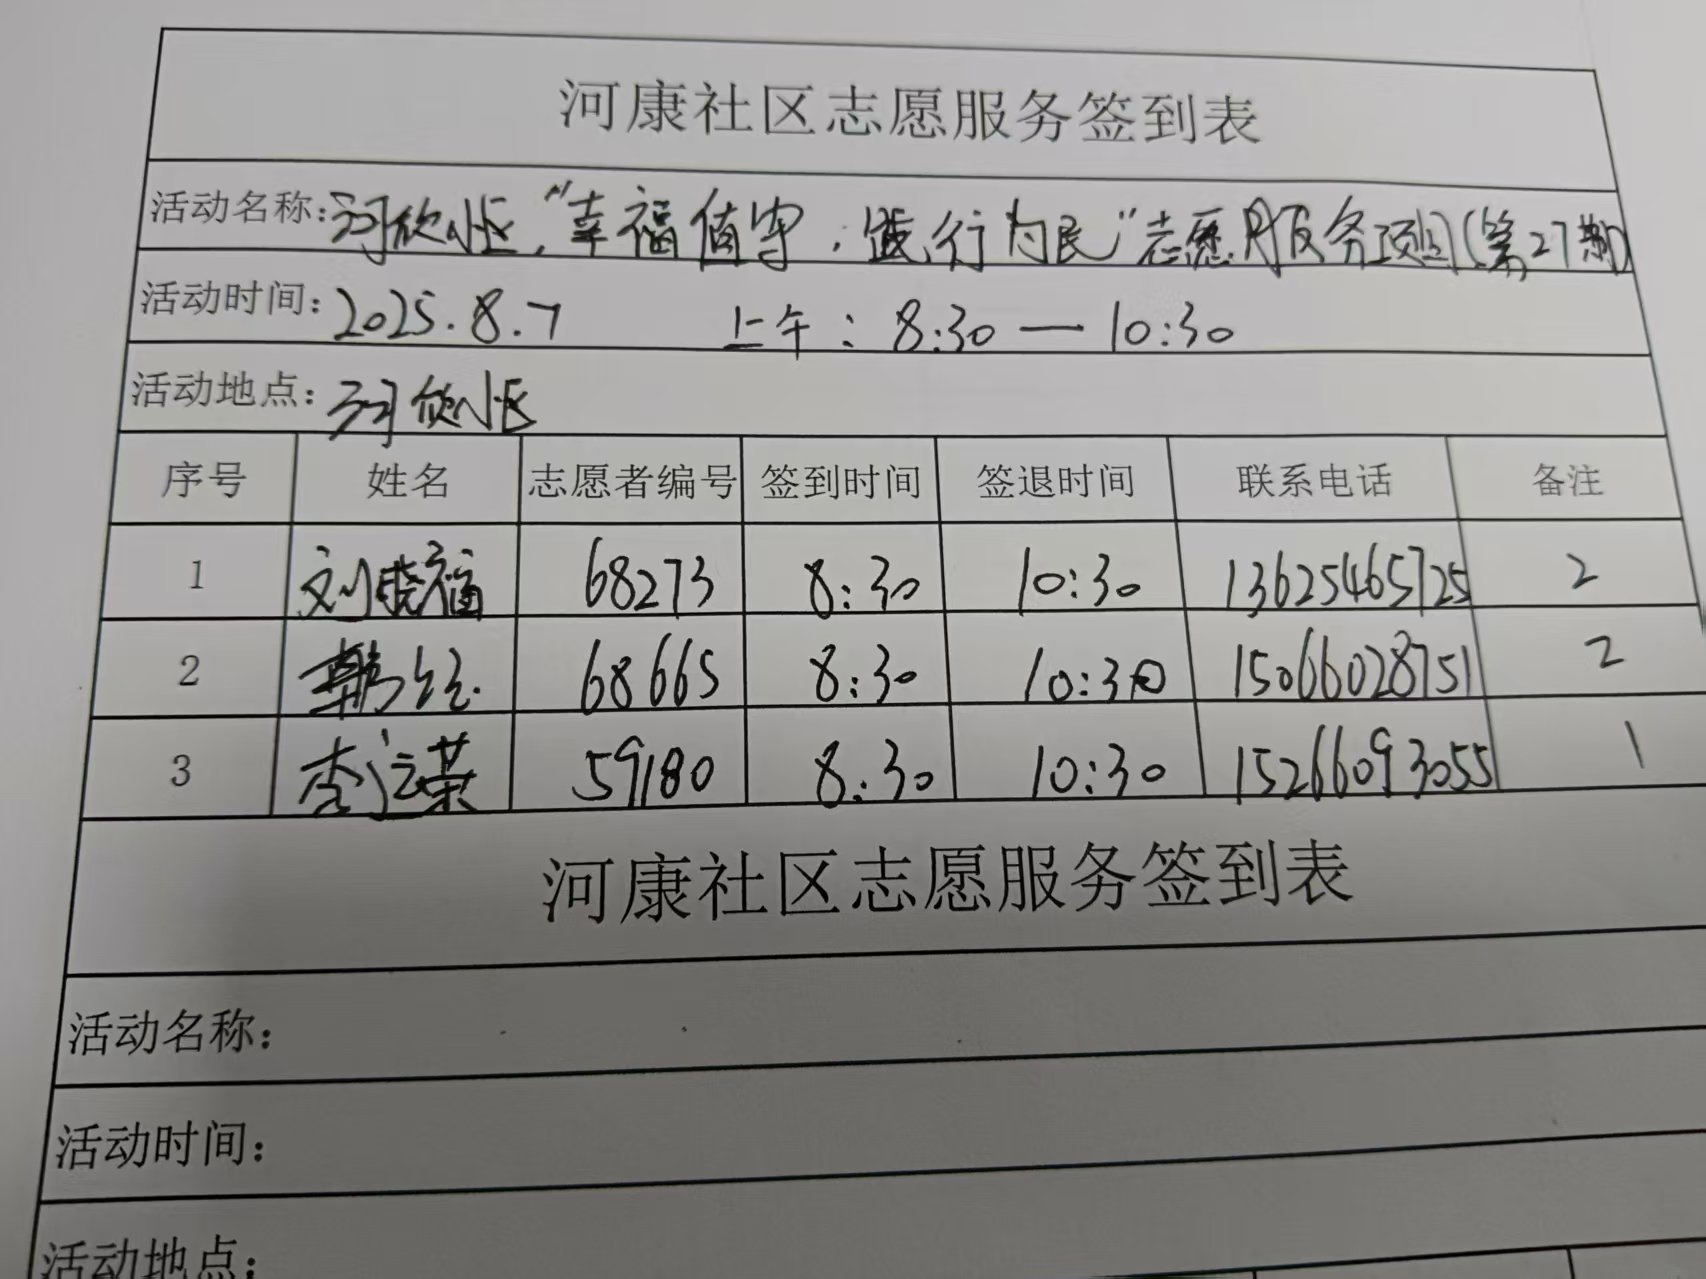 河康社区志愿服务签到表
活动名称:河欣小区“幸福值守,践行为民”志愿服务项目(第27期)
活动时间:2025.8.7 上午:8:30—10:30
活动地点:河欣小区
序号 姓名 志愿者编号 签到时间 签退时间 联系电话 备注
1 刘晓福 68273 8:30 10:30 13625465725 2
2 韩 68665 8:30 10:30 15066028751 2
3 李运荣 59180 8:30 10:30 15266093055 1
河康社区志愿服务签到表
活动名称:
活动时间:
活动地点: